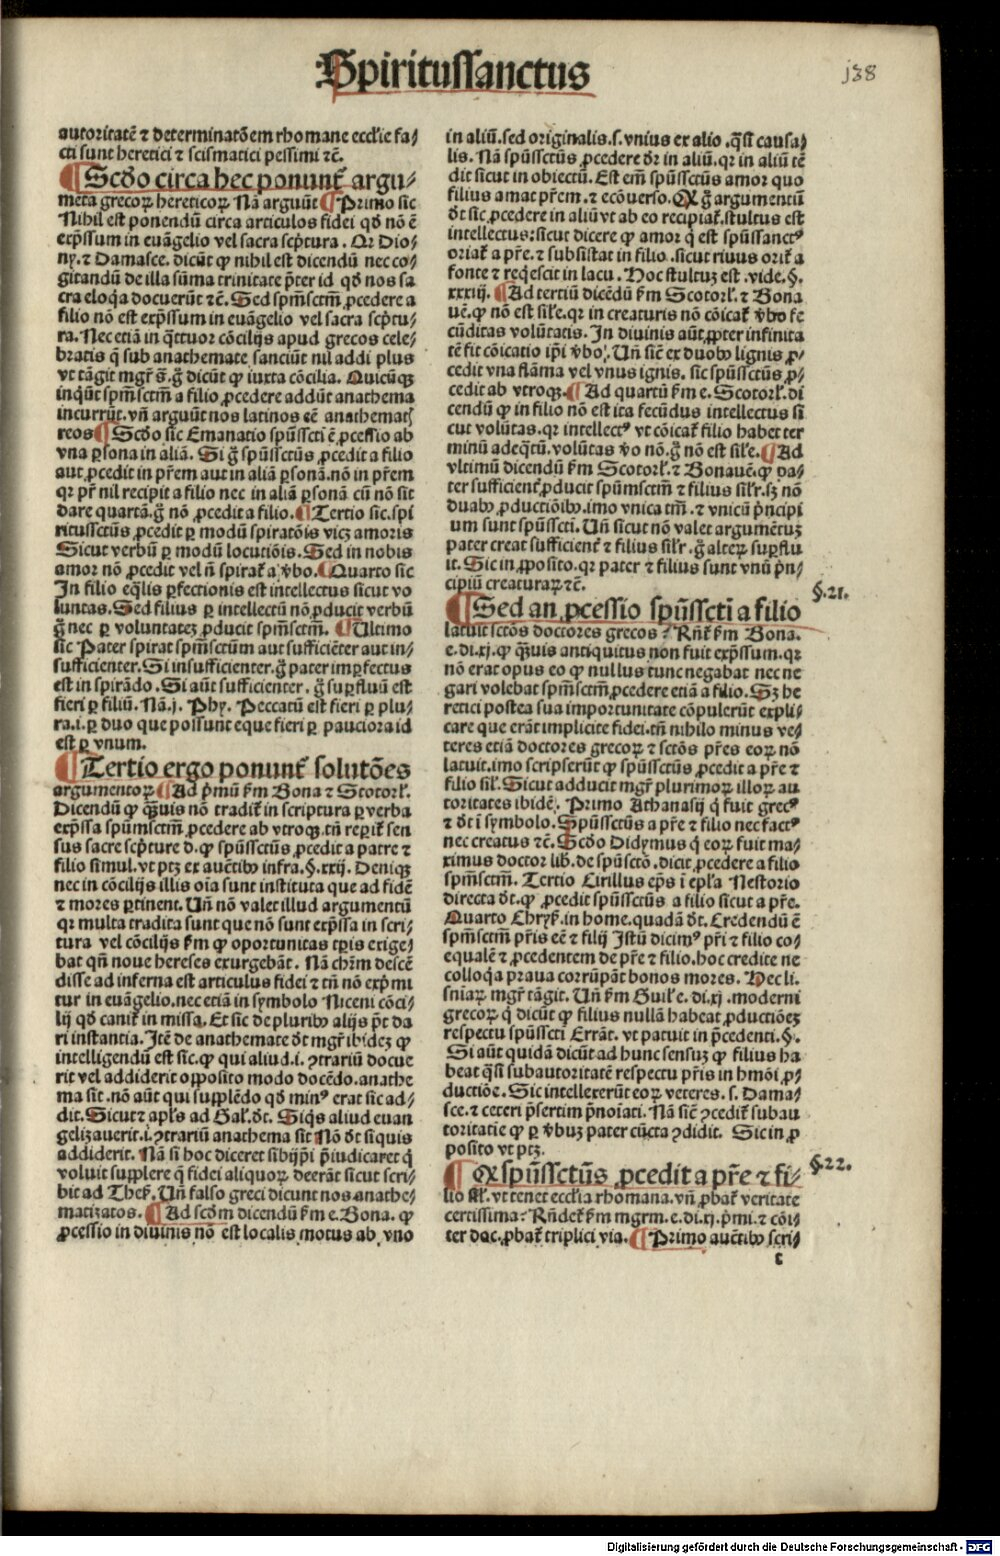 Spiritussanctus
138
autoritatē ⁊ determinatōem rhomane eccľie fa⸗
cti sunt heretici ⁊ scismatici pessimi ⁊c̄.
¶ Scd̄o circa hec ponunt᷑ argu⸗
mēta grecoꝝ hereticoꝝ. Nā arguūt ¶ Primo sic
Nihil est ponendū circa articulos fidei qd̄ nō ē
exp̄ssum in euāgelio vel sacra scp̄tura. Qr Dio⸗
ny. ⁊ Damasce. dicūt ꝙ nihil est dicendū nec co⸗
gitandū de illa sūma trinitate p̄ter id qd̄ nos sa
cra eloq̄a docuerūt ⁊c̄. Sed spm̄sctm̄ ꝓcedere a
filio nō est exp̄ssum in euāgelio vel sacra scp̄tu⸗
ra. Nec etiā in q̄ttuor cōcilijs apud grecos cele⸗
bratis q̄ sub anathemate sanciūt nil addi plus
vt tāgit mgr̄ s̄. g̊ dicūt ꝙ iuxta cōcilia. Quicūqꝫ
inqūt spm̄sctm̄ a filio ꝓcedere addūt anathema
incurrūt. vn̄ arguūt nos latinos eē anathemat᷑
reos ¶ Scd̄o sic Emanatio spūssctī ē ꝓcessio ab
vna ꝑsona in aliā. Si g̊ spūssctūs ꝓcedit a filio
aut ꝓcedit in pr̄em aut in aliā ꝑsonā. nō in pr̄em
qr pr̄ nil recipit a filio nec in aliā ꝑsonā cū nō sit
dare quartā. g̊ nō ꝓcedit a filio. ¶ Tertio sic. spi
ritussctūs ꝓcedit ꝑ modū spiratōis vicꝫ amoris
Sicut verbū ꝑ modū locutiōis. Sed in nobis
amor nō ꝓcedit vel n̄ spirat᷑ a v̄bo. ¶ Quarto sic
In filio eq̄lis ꝑfectionis est intellectus sicut vo
luntas. Sed filius ꝑ intellectū nō ꝓducit verbū
g̊ nec ꝑ voluntateꝫ ꝓducit spm̄sctm̄. ¶ Ultimo
sic Pater spirat spm̄sctūm aut sufficiēter aut in⸗
sufficienter. Si insufficienter. g̊ pater imꝑfectus
est in spirādo. Si aūt sufficienter. g̊ suꝑfluū est
fieri ꝑ filiū. Nā .j. Phy. Peccatū est fieri ꝑ plu⸗
ra .i. ꝑ duo que possunt eque fieri ꝑ pauciora id
est ꝑ vnum.
¶ Tertio ergo ponunt᷑ solutōes
argumentoꝝ ¶ Ad p̄mū ẜm Bona ⁊ Scotoꝝ.
Dicendū ꝙ q̄uis nō tradit᷑ in scriptura ꝑ verba
exp̄ssa spūmsctm̄ ꝓcedere ab vtroqꝫ. tn̄ reꝑit᷑ sen
sus sacre scp̄ture d. ꝙ spūssctūs ꝓcedit a patre ⁊
filio simul. vt ptꝫ ex auc̄tibꝰ infra. §. xxij. Deniqꝫ
nec in cōcilijs illis oīa sunt instituta que ad fidē
⁊ mores ꝑtinent. Un̄ nō valet illud argumentū
qr multa tradita sunt que nō sunt exp̄ssa in scri⸗
tura vel cōcilijs ẜm ꝙ oportunitas tꝑis exige⸗
bat qn̄ noue hereses exurgebāt. Nā chr̄m descē
disse ad inferna est articulus fidei ⁊ tn̄ nō exp̄mi
tur in euāgelio. nec etiā in symbolo Niceni cōci⸗
lij qd̄ canit᷑ in missa. Et sic̄ de pluribꝰ alijs pt̄ da
ri instantia. Itē de anathemate dt̄ mgr̄ ibideꝫ ꝙ
intelligendū est sic. ꝙ qui aliud .i. ꝯtrariū docue
rit vel addiderit opposito modo docēdo. anathe
ma sit. nō aūt qui supplēdo qd̄ minꝰ erat sic ad⸗
dit. Sicut ⁊ apľs ad Gal. dt̄. Siq̄s aliud euan
gelizauerit .i. ꝯtrariū anathema sit Nō dt̄ siquis
addiderit. Nā si hoc diceret sibijp̄i p̄iudicaret q̄
voluit supplere q̄ fidei aliquoꝝ deerāt sicut scri⸗
bit ad Theẜ. Un̄ falso greci dicunt nos anathe⸗
matizatos. ¶ Ad scd̄m dicendū ẜm e. Bona. ꝙ
ꝓcessio in diuinis nō est localis motus ab vno
in aliū. sed originalis .s. vnius ex alio. q̄si causa⸗
lis. Nā spūssctūs ꝓcedere dr̄ in aliū. qr in aliū tē
dit sicut in obiectū. Est em̄ spūssctūs amor quo
filius amat pr̄em. ⁊ ecōuerso. Ex g̊ argumentū
dt̄ sic ꝓcedere in aliū vt ab eo recipiat᷑. stultus est
intellectus: sicut dicere ꝙ amor q̄ est spūssanctꝰ
oriat᷑ a pr̄e. ⁊ subsistat in filio. sicut riuus orit᷑ a
fonte ⁊ req̄escit in lacu. Hoc stultuꝫ est. vide. §.
xxxiij. ¶ Ad tertiū dicēdū ẜm Scotoꝝ. ⁊ Bona
uē. ꝙ nō est siľe. qr in creaturis nō cōicat᷑ v̄bo fe
cūditas volūtatis. In diuinis aūt ꝓpter infinita
tē fit cōicatio ip̄i v̄bo. Un̄ sic̄ ex duobꝰ lignis ꝓ⸗
cedit vna flāma vel vnus ignis. sic spūssctūs ꝓ⸗
cedit ab vtroqꝫ. ¶ Ad quartū ẜm e. Scotoꝝ. di
cendū ꝙ in filio nō est ita fecūdus intellectus si
cut volūtas. qr intellectꝰ vt cōicat᷑ filio habet ter
minū adeq̄tū. volūtas v̄o nō. g̊ nō est siľe. ¶ Ad
vltimū dicendū ẜm Scotoꝝ. ⁊ Bonauē. ꝙ pa⸗
ter sufficient᷑ ꝓducit spūmsctm̄ ⁊ filius siľr. sꝫ nō
duabꝰ ꝓductiōibꝰ. imo vnica tm̄. ⁊ vnicū p̄ncipi
um sunt spūsscti. Un̄ sicut nō valet argumētuꝫ
pater creat sufficient᷑ ⁊ filius siľr. g̊ alteꝝ suꝑflu
it. Sic in ꝓposito. qr pater ⁊ filius sunt vnū p̄n⸗
cipiū creaturaꝝ ⁊c̄.
§. 21.
¶ Sed an ꝓcessio spūssctī a filio
latuit sctōs doctores grecos? Rn̄t᷑ ẜm Bona.
e. di. xj. ꝙ q̄uis antiquitus non fuit exp̄ssum. qr
nō erat opus eo ꝙ nullus tunc negabat nec ne
gari volebat spm̄sctm̄ ꝓcedere etiā a filio. Sꝫ he
retici postea sua importunitate cōpulerūt expli⸗
care que erāt implicite fidei. tn̄ nihilo minus ve⸗
teres etiā doctores grecoꝝ ⁊ sctōs pr̄es eoꝝ nō
latuit. imo scripserūt ꝙ spūssctūs ꝓcedit a pr̄e ⁊
filio siľ. Sicut adducit mgr̄ plurimoꝝ illoꝝ au
toritates ibidē. Primo Athanasij q̄ fuit grecꝰ
⁊ dt̄ ī symbolo. Spūssctūs a pr̄e ⁊ filio nec factꝰ
nec creatus ⁊c̄. Scd̄o Didymus q̄ eoꝝ fuit ma⸗
ximus doctor lib. de spūsctō. dicit ꝓcedere a filio
spm̄sctm̄. Tertio Cirillus ep̄s ī epľa Nestorio
directa dt̄. ꝙ ꝓcedit spūssctūs a filio sicut a pr̄e.
Quarto Chryẜ. in home. quadā dt̄. Credendū ē
spm̄sctm̄ pr̄is eē ⁊ filij Istū dicimꝰ pr̄i ⁊ filio co⸗
equalē ⁊ ꝓcedentem de pr̄e ⁊ filio. hoc credite ne
colloq̄a praua corrūpāt bonos mores. Hec li.
sniaꝝ. mgr̄ tāgit. Un̄ ẜm Guiľ e. di. xj. moderni
grecoꝝ q̄ dicūt ꝙ filius nullā habeat ꝓductiōeꝫ
respectu spūssctī Errāt. vt patuit in p̄cedenti. §.
Si aūt quidā dicūt ad hunc sensuꝫ ꝙ filius ha
beat q̄si subautoritatē respectu pr̄is in hmōi ꝓ⸗
ductiōe. Sic intellexerūt eoꝝ veteres. s. Dama⸗
sce. ⁊ ceteri p̄sertim p̄noīati. Nā sic̄ ꝯcedit᷑ subau
toritatie ꝙ ꝑ v̄buꝫ pater cūcta ꝯdidit. Sic in ꝓ
posito vt ptꝫ.
§. 22.
¶ Ex spūssctūs ꝓcedit a pr̄e ⁊ fi⸗
lio siľ. vt tenet eccľia rhomana. vn̄ ꝓbat᷑ veritate
certissima? Rn̄det᷑ ẜm mgrm̄. e. di. xj. p̄mi. ⁊ cōi⸗
ter doc. ꝓbat᷑ triplici via. ¶ Primo auc̄tibꝰ scri⸗
c
Digitalisierung gefördert durch die Deutsche Forschungsgemeinschaft - DFG